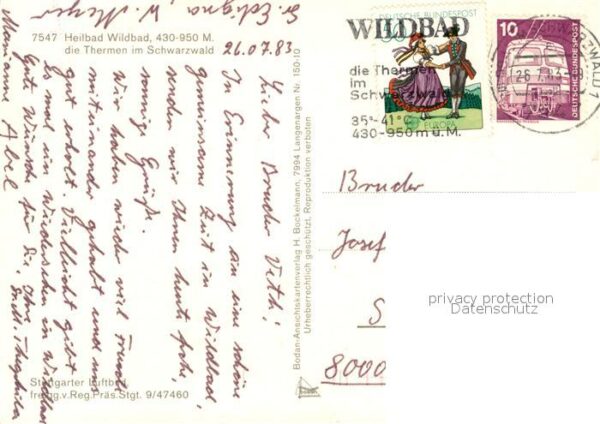 7547 Heilbad Wildbad, 430-950 M.
die Thermen im Schwarzwald
26.07.83
Lieber Bruder Veth!
In Erinnerung an eine schöne
gemeinsame Zeit in Wildbad,
senden wir Ihnen heute frohe,
sonnige Grüße.
Wir haben wieder viel Freude
miteinander gehabt und uns
gut erholt. Vielleicht gibt
es mal ein Wiedersehen in Wildbad
Gute Wünsche für Sie, Ihre
Marianne Abel
Stuttgarter Luftbild
freig. v. Reg. Präs. Stgt. 9/47460
Bodan-Ansichtskartenverlag H. Bockelmann, 7994 Langenargen Nr. 150-10
Urheberrechtlich geschützt. Reproduktion verboten
WILDBAD
die Thermen
im
Schwarzwald
35°-41°C
430-950m ü.M.
DEUTSCHE BUNDESPOST
EUROPA
10
DEUTSCHE BUNDESPOST
Bruder
Josef
S
8000
privacy protection
Datenschutz